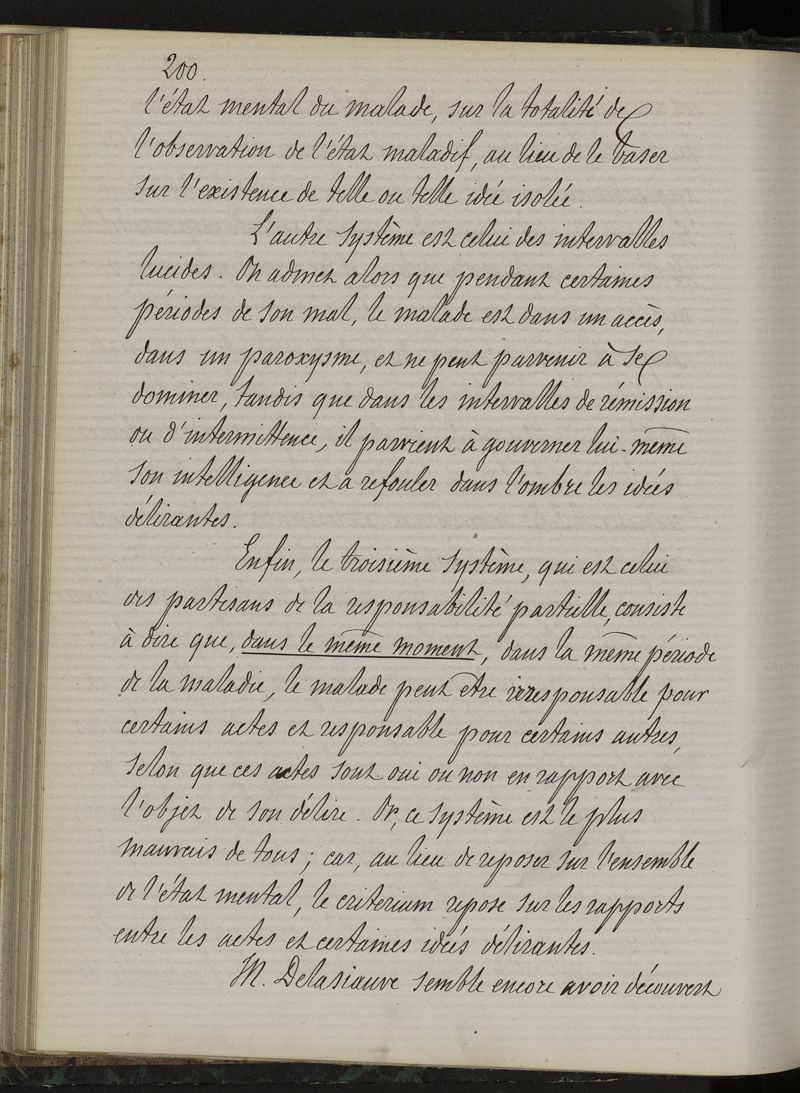 200.
l'état mental du malade, sur la totalité de
l'observation de l'état maladif, au lieu de le baser
sur l'existence de telle ou telle idée isolée.
L'autre système est celui des intervalles
lucides. On admet alors que pendant certaines
périodes de son mal, le malade est dans un accès,
dans un paroxysme, et ne peut parvenir à se
dominer, tandis que dans les intervalles de rémission
ou d'intermittence, il parvient à gouverner lui-même
son intelligence et a refouler dans l'ombre les idées
délirantes.
Enfin, le troisième système, qui est celui
des partisans de la responsabilité partielle, consiste
à dire que, dans le même moment, dans la même période
de la maladie, le malade peut être irresponsable pour
certains actes et responsable pour certains autres,
selon que ces actes sont oui ou non en rapport avec
l'objet de son délire. Or, ce système est le plus
mauvais de tous ; car, au lieu de reposer sur l'ensemble
de l'état mental, le criterium repose sur les rapports
entre les actes et certaines idées délirantes.
M. Delasiauve semble encore avoir découvert